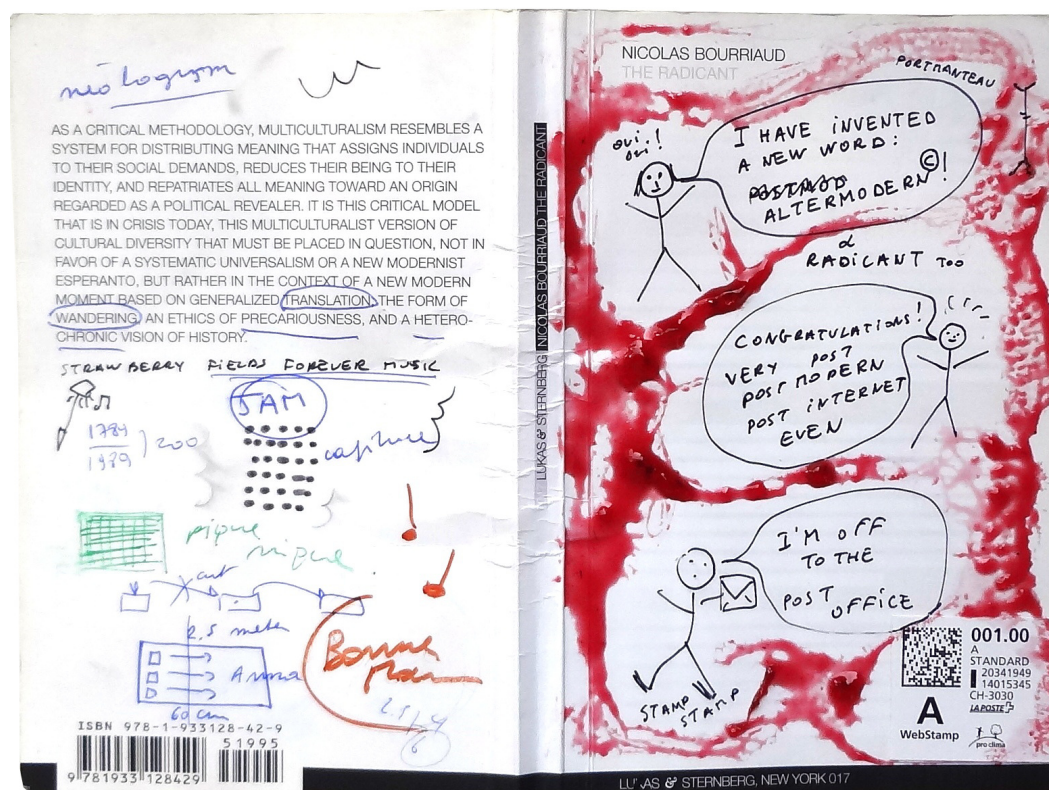 néologism
AS A CRITICAL METHODOLOGY, MULTICULTURALISM RESEMBLES A
SYSTEM FOR DISTRIBUTING MEANING THAT ASSIGNS INDIVIDUALS
TO THEIR SOCIAL DEMANDS, REDUCES THEIR BEING TO THEIR
IDENTITY, AND REPATRIATES ALL MEANING TOWARD AN ORIGIN
REGARDED AS A POLITICAL REVEALER. IT IS THIS CRITICAL MODEL
THAT IS IN CRISIS TODAY, THIS MULTICULTURALIST VERSION OF
CULTURAL DIVERSITY THAT MUST BE PLACED IN QUESTION, NOT IN
FAVOR OF A SYSTEMATIC UNIVERSALISM OR A NEW MODERNIST
ESPERANTO, BUT RATHER IN THE CONTEXT OF A NEW MODERN
MOMENT BASED ON GENERALIZED TRANSLATION, THE FORM OF
WANDERING, AN ETHICS OF PRECARIOUSNESS, AND A HETERO-
CHRONIC VISION OF HISTORY.
STRAWBERRY FIELDS FOREVER MUSIC
JAM
1789
1989
200
capture
pique
nique
cut
2,5 meter
Anna
60 cm
Bonne
ISBN 978-1-933128-42-9
51995
9 781933 128429
LUKAS & STERNBERG NICOLAS BOURRIAUD THE RADICANT
NICOLAS BOURRIAUD
THE RADICANT
PORTMANTEAU
OUI!
OUI!
I HAVE INVENTED
A NEW WORD:
POSTMOD
ALTERMODERN © !
&
RADICANT TOO
CONGRATULATIONS!
VERY POST
POSTMODERN
POST INTERNET
EVEN
I'M OFF
TO THE
POST
OFFICE
STAMP
STAMP
001.00
A
STANDARD
20341949
14015345
CH-3030
LA POSTE
A
WebStamp
pro clima
LUKAS & STERNBERG, NEW YORK 017